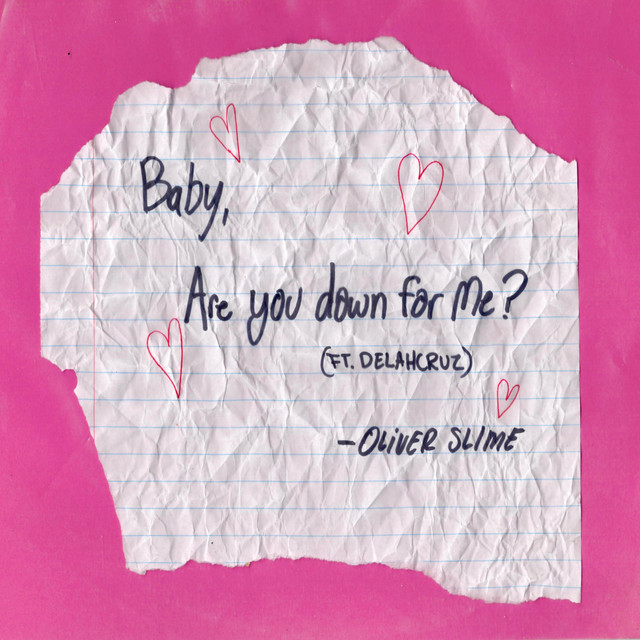 Baby,
Are you down for Me?
(FT. DELAHCRUZ)
-OLIVER SLIME